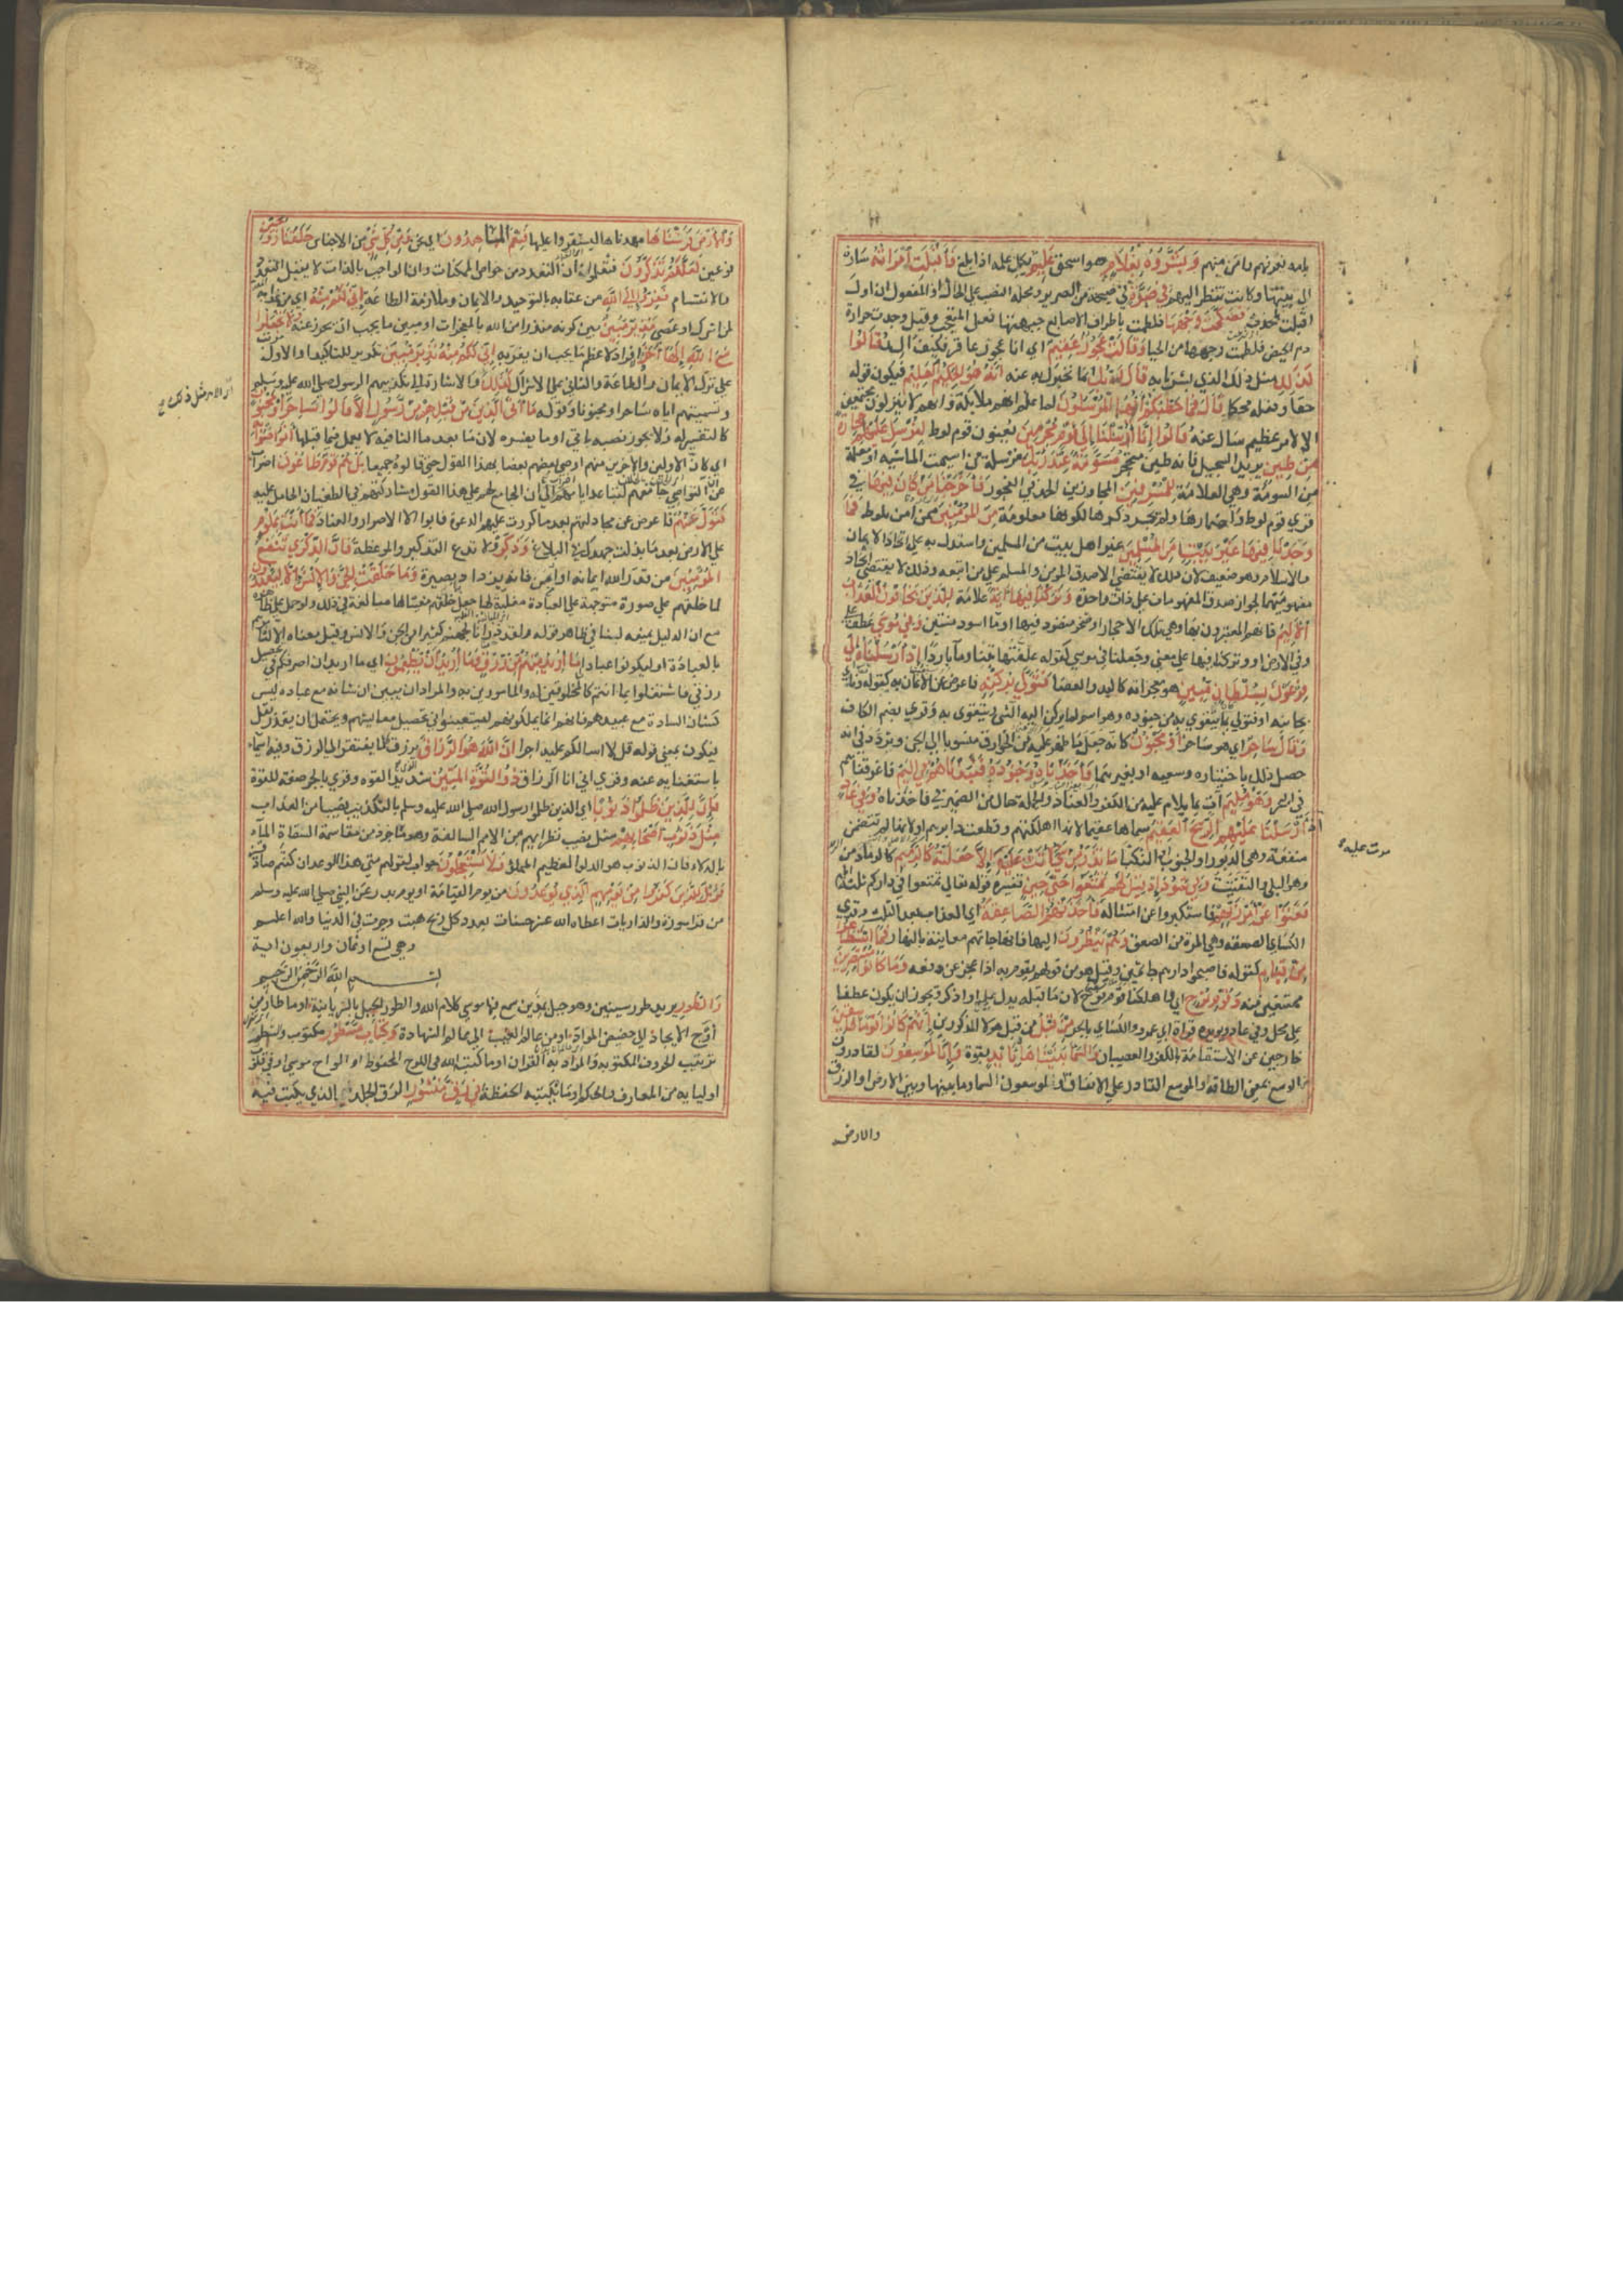 بامه فعرفهم وامن منهم وَبَشَّرُوهُ بِغُلَامٍ هو اسحق عَلِيمٍ يكمل علمه اذا بلغ فَأَقْبَلَتِ امْرَأَتُهُ سارة
الى بيتها وكانت تنظر اليهم فِي صَرَّةٍ في صيحة من الصرير ومحله النصب على الحال او المفعول ان اول
اقبلت باخذت فَصَكَّتْ وَجْهَهَا فلطمت باطراف الاصابع جبهتها فعل المتعجب وقيل وجدت حرارة
دم الحيض فلطمت وجهها من الحيا وَقَالَتْ عَجُوزٌ عَقِيمٌ اي انا عجوز عاقر فكيف الد قَالُوا
كَذَلِكِ مثل ذلك الذي بشرنا به قَالَ رَبُّكِ وانما نخبرك به عنه إِنَّهُ هُوَ الْحَكِيمُ الْعَلِيمُ فيكون قوله
حقا وفعله محكما قَالَ فَمَا خَطْبُكُمْ أَيُّهَا الْمُرْسَلُونَ لما علم انهم ملائكة وانهم لا ينزلون مجتمعين
الا لامر عظيم سال عنه قَالُوا إِنَّا أُرْسِلْنَا إِلَى قَوْمٍ مُجْرِمِينَ يعنون قوم لوط لِنُرْسِلَ عَلَيْهِمْ حِجَارَةً
مِنْ طِينٍ يريد السجيل فانه طين متحجر مُسَوَّمَةً عِنْدَ رَبِّكَ مرسلة من اسيمت الماشية او معلمة
من السومة وهي العلامة لِلْمُسْرِفِينَ المجاوزين الحد في الفجور فَأَخْرَجْنَا مَنْ كَانَ فِيهَا في
قري قوم لوط واضمارها ولم يجر ذكرها لكونها معلومة مِنَ الْمُؤْمِنِينَ ممن امن بلوط فَمَا
وَجَدْنَا فِيهَا غَيْرَ بَيْتٍ مِنَ الْمُسْلِمِينَ غير اهل بيت من المسلمين واستدل به على اتحاد الايمان
والاسلام وهو ضعيف لان ذلك لا يقتضي الا صدق المؤمن والمسلم على من اتبعه وذلك لا يقتضي اتحاد
مفهوميهما لجواز صدق المفهومات على ذات واحدة وَتَرَكْنَا فِيهَا آيَةً علامة لِلَّذِينَ يَخَافُونَ الْعَذَابَ
الْأَلِيمَ فانهم المعتبرون بها وهي تلك الاحجار او صخر منضود فيها او ماء اسود منتن وَفِي مُوسَى عطف على
وفي الارض او وتركنا فيها على معنى وجعلنا في موسى كقوله علفتها تبنا وماء باردا إِذْ أَرْسَلْنَاهُ إِلَى
فِرْعَوْنَ بِسُلْطَانٍ مُبِينٍ هو معجزاته كاليد والعصا فَتَوَلَّى بِرُكْنِهِ فاعرض عن الايمان به كقوله وناى
بجانبه او فتولى بما يتقوى به من جنوده وهو اسم لما يركن اليه الشي ويتقوى به وقري بضم الكاف
وَقَالَ سَاحِرٌ اي هو ساحر أَوْ مَجْنُونٌ كانه جعل ما ظهر عليه من الخوارق منسوبا الى الجن وتردد في انه
حصل ذلك باختياره وسعيه او بغيرهما فَأَخَذْنَاهُ وَجُنُودَهُ فَنَبَذْنَاهُمْ فِي الْيَمِّ فاغرقناهم
في البحر وَهُوَ مُلِيمٌ آت بما يلام عليه من الكفر والعناد والجملة حال من الضمير في فاخذناه وَفِي عَادٍ
إِذْ أَرْسَلْنَا عَلَيْهِمُ الرِّيحَ الْعَقِيمَ سماها عقيما لانها اهلكتهم وقطعت دابرهم او لانها لم تتضمن
منفعة وهي الدبور او الجنوب او النكبا مَا تَذَرُ مِنْ شَيْءٍ أَتَتْ عَلَيْهِ إِلَّا جَعَلَتْهُ كَالرَّمِيمِ كالرماد من الرم
وهو البلى والتفتت وَفِي ثَمُودَ إِذْ قِيلَ لَهُمْ تَمَتَّعُوا حَتَّى حِينٍ تفسيره قوله تعالى تمتعوا في داركم ثلثة ايام
فَعَتَوْا عَنْ أَمْرِ رَبِّهِمْ فاستكبروا عن امتثاله فَأَخَذَتْهُمُ الصَّاعِقَةُ اي العذاب بعد الثلث وقري
الكسائي الصعقة وهي المرة من الصعق وَهُمْ يَنْظُرُونَ اليها فانها جاتهم معاينة بالنهار فَمَا اسْتَطَاعُوا
مِنْ قِيَامٍ كقوله فاصبحوا في دارهم جاثمين وقيل هو من قولهم ما يقوم به اذا عجز عن دفعه وَمَا كَانُوا مُنْتَصِرِينَ
ممتنعين منه وَقَوْمَ نُوحٍ اي واهلكنا قوم نوح لان ما قبله يدل عليه او اذكر ويجوز ان يكون عطفا
على محل وفي عاد ويويده قراة ابي عمرو والكسائي بالجر مِنْ قَبْلُ من قبل هولا المذكورين إِنَّهُمْ كَانُوا قَوْمًا فَاسِقِينَ
خارجين عن الاستقامة بالكفر والعصيان وَالسَّمَاءَ بَنَيْنَاهَا بِأَيْدٍ بقوة وَإِنَّا لَمُوسِعُونَ لقادرون
من الوسع بمعنى الطاقة والموسع القادر على الانفاق او لموسعون السما وما بينها وبين الارض او الرزق
والارض
موت عليه
وَالْأَرْضَ فَرَشْنَاهَا مهدناها ليستقروا عليها فَنِعْمَ الْمَاهِدُونَ اي نحن وَمِنْ كُلِّ شَيْءٍ من الاجناس خَلَقْنَا زَوْجَيْنِ
نوعين لَعَلَّكُمْ تَذَكَّرُونَ فتعلموا ان التعدد من خواص الممكنات وان الواجب بالذات لا يقبل التعدد
والانقسام فَفِرُّوا إِلَى اللَّهِ من عقابه بالتوحيد والايمان وملازمة الطاعة إِنِّي لَكُمْ مِنْهُ اي من عذابه المعد
لمن اشرك او عصى نَذِيرٌ مُبِينٌ بين كونه منذرا من الله بالمعجزات او مبين ما يجب ان يحذر عنه وَلَا تَجْعَلُوا
مَعَ اللَّهِ إِلَهًا آخَرَ افراد لاعظم ما يجب ان يفر منه إِنِّي لَكُمْ مِنْهُ نَذِيرٌ مُبِينٌ تكرير للتاكيد او الاول مرتب
على ترك الايمان والطاعة والثاني على الاشراك كَذَلِكَ والاشارة الى تكذيبهم الرسول صلى الله عليه وسلم
وتسميتهم اياه ساحرا ومجنونا وقوله مَا أَتَى الَّذِينَ مِنْ قَبْلِهِمْ مِنْ رَسُولٍ إِلَّا قَالُوا سَاحِرٌ أَوْ مَجْنُونٌ
كالتفسير له ولا يجوز نصبه باتى او ما يفسره لان ما بعد ما النافية لا يعمل فيما قبلها أَتَوَاصَوْا بِهِ
اي كان الاولين والاخرين منهم اوصى بعضهم بعضا بهذا القول حتى قالوه جميعا بَلْ هُمْ قَوْمٌ طَاغُونَ اضراب
عن ان التواصي جامعهم لتباعد ايامهم الى ان الجامع لهم على هذا القول مشاركتهم في الطغيان الحامل عليه
فَتَوَلَّ عَنْهُمْ فاعرض عن مجادلتهم بعد ما كررت عليهم الدعوة فابوا الا الاصرار والعناد فَمَا أَنْتَ بِمَلُومٍ
على الاعراض بعد ما بذلت جهدك في البلاغ وَذَكِّرْ ولا تدع التذكير والموعظة فَإِنَّ الذِّكْرَى تَنْفَعُ
الْمُؤْمِنِينَ من قدر الله ايمانه او امن فانه يزداد بصيرة وَمَا خَلَقْتُ الْجِنَّ وَالْإِنْسَ إِلَّا لِيَعْبُدُونِ
لما خلقهم على صورة متوجهة الى العبادة مغلبة لها جعل خلقهم مغيا لها مبالغة في ذلك ولو حمل على ظاهره
مع ان الدليل يمنعه لينافي ظاهر قوله ولقد ذرأنا لجهنم كثيرا من الجن والانس وقيل معناه الا لنامرهم
بالعبادة او ليكونوا عبادا مَا أُرِيدُ مِنْهُمْ مِنْ رِزْقٍ وَمَا أُرِيدُ أَنْ يُطْعِمُونِ اي ما اريد ان اصرفكم في تحصيل
رزقي فاشتغلوا بما انتم كالمخلوقين له والمامورين به والمراد ان يبين ان شانه مع عباده ليس
كشان السادة مع عبيدهم فانهم انما يملكونهم ليستعينوا بهم في تحصيل معايشهم ويحتمل ان يقدر بقل
فيكون بمعنى قوله قل لا اسالكم عليه اجرا إِنَّ اللَّهَ هُوَ الرَّزَّاقُ يرزق كل ما يفتقر الى الرزق وفيه ايماء
باستغنايه عنه وقري اني انا الرزاق ذُو الْقُوَّةِ الْمَتِينُ شديد القوه وقري بالجر صفة للقوة
فَإِنَّ لِلَّذِينَ ظَلَمُوا ذَنُوبًا اي للذين ظلموا رسول الله صلى الله عليه وسلم بالتكذيب نصيبا من العذاب
مِثْلَ ذَنُوبِ أَصْحَابِهِمْ مثل نصيب نظرائهم من الامم السالفة وهو ماخوذ من مقاسمة السقاة الماء
بالدلاء فان الذنوب هو الدلو العظيم المملو فَلَا يَسْتَعْجِلُونِ جواب لقولهم متى هذا الوعد ان كنتم صادقين
فَوَيْلٌ لِلَّذِينَ كَفَرُوا مِنْ يَوْمِهِمُ الَّذِي يُوعَدُونَ من يوم القيامة او يوم بدر وعن النبي صلى الله عليه وسلم
من قرا سورة والذاريات اعطاه الله عشر حسنات بعدد كل ريح هبت وجرت في الدنيا والله اعلم
وهي تسع او ثمان واربعون اية
بسم الله الرحمن الرحيم
وَالطُّورِ يريد طور سينين وهو جبل بمدين سمع فيها موسى كلام الله والطور الجبل بالسريانية او ما طار من
اوج الايجاد الى حضيض المواد او من عالم الغيب الى عالم الشهادة وَكِتَابٍ مَسْطُورٍ مكتوب والسطر
ترتيب الحروف المكتوبة والمراد به القران او ما كتبه الله في اللوح المحفوظ او الواح موسى او في قلوب
اوليايه من المعارف والحكم او ما تكتبه الحفظة فِي رَقٍّ مَنْشُورٍ الرق الجلد الذي يكتب فيه